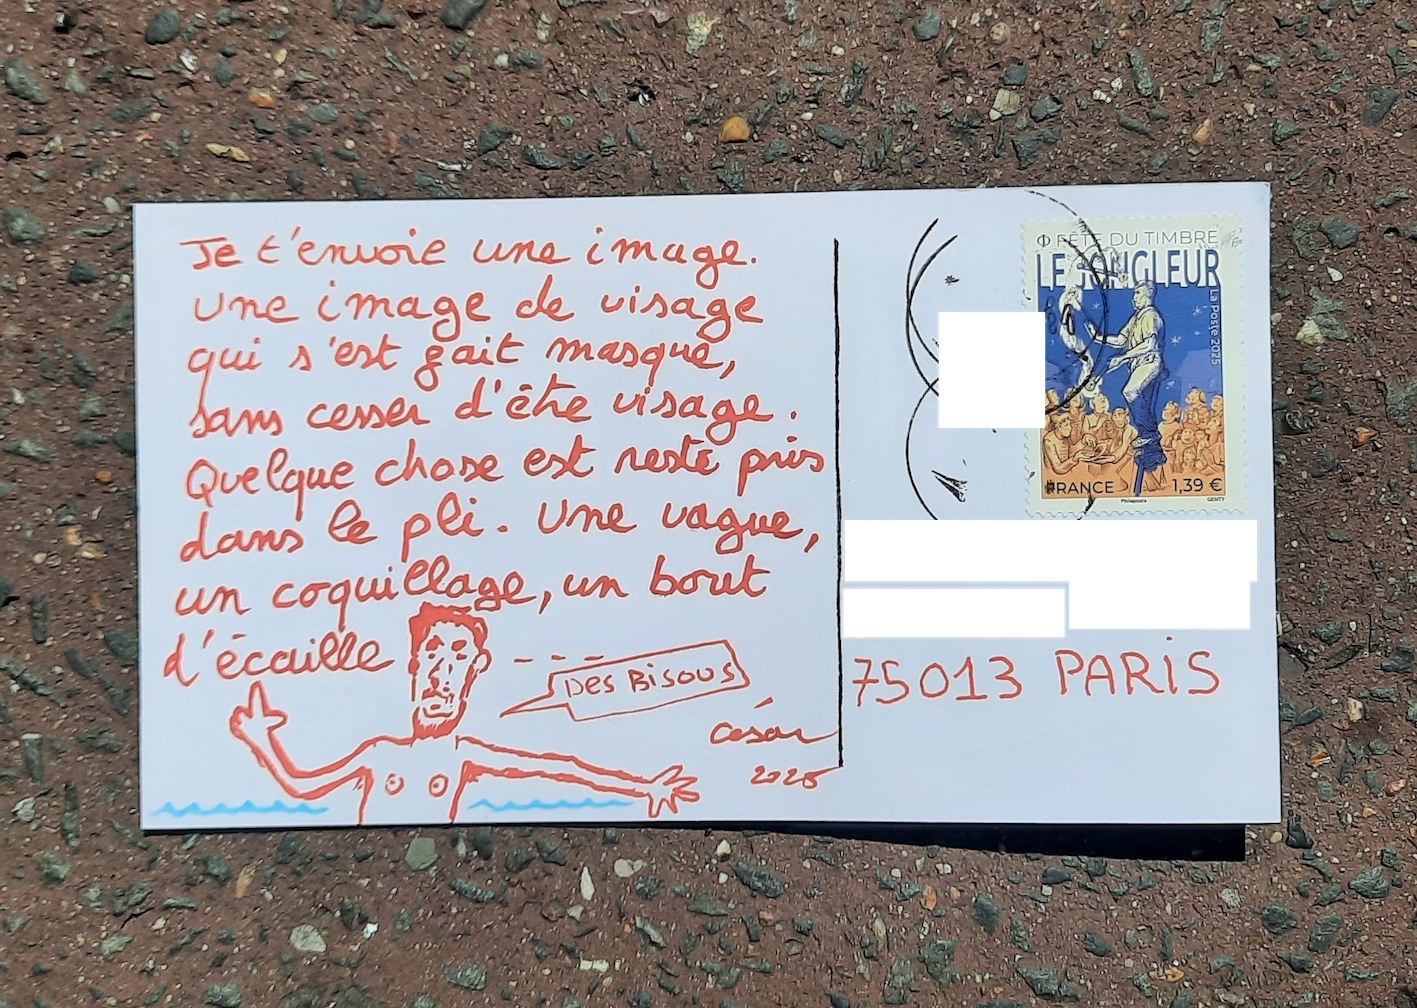 Je t'envoie une image.
Une image de visage
qui s'est fait masque,
sans cesser d'être visage.
Quelque chose est resté pris
dans le pli. Une vague,
un coquillage, un bout
d'écaille
Des Bisous
César
2025
FÊTE DU TIMBRE
LE JONGLEUR
La Poste 2025
FRANCE 1,39 €
Philaposte GENTY
75013 PARIS